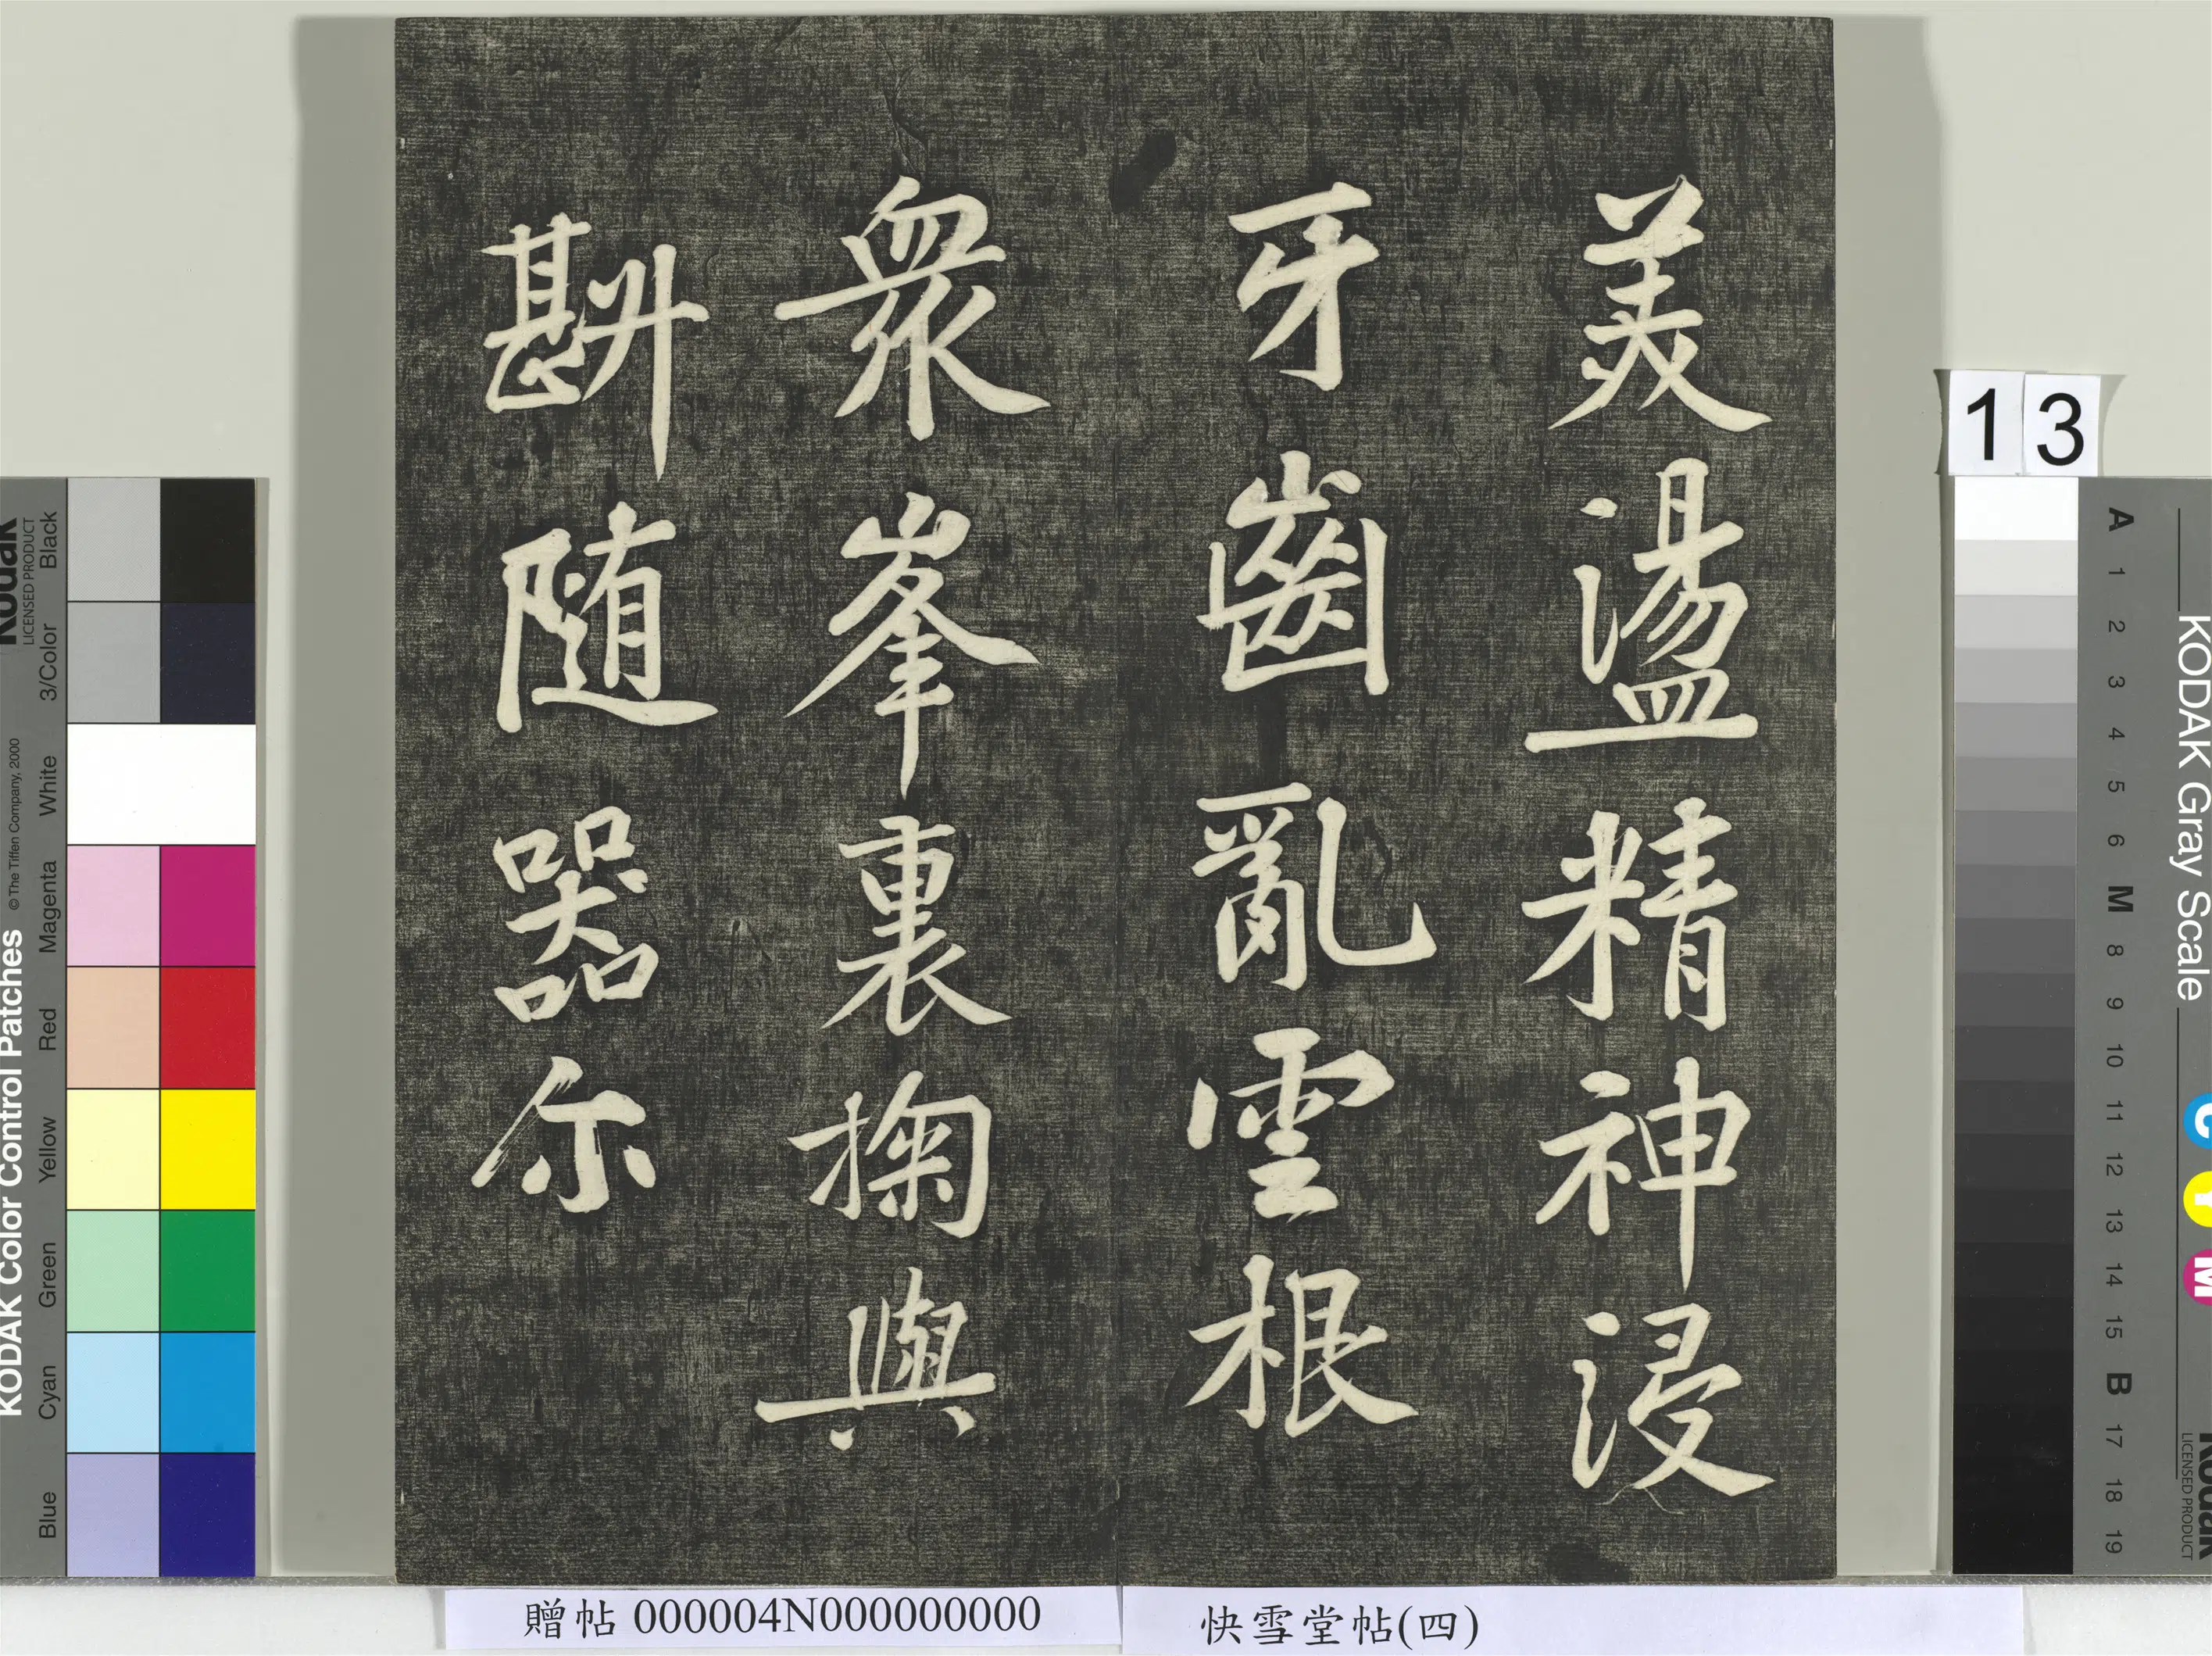 羙盪精神浸
牙齒亂雲根
衆峯裏掬與
斟随器尓
13
贈帖 000004N000000000
快雪堂帖(四)
KODAK Color Control Patches
© The Tiffen Company, 2000
Kodak
LICENSED PRODUCT
Blue Cyan Green Yellow Red Magenta White 3/Color Black
KODAK Gray Scale
A 1 2 3 4 5 6 M 8 9 10 11 12 13 14 15 B 17 18 19
C Y M
Kodak
LICENSED PRODUCT